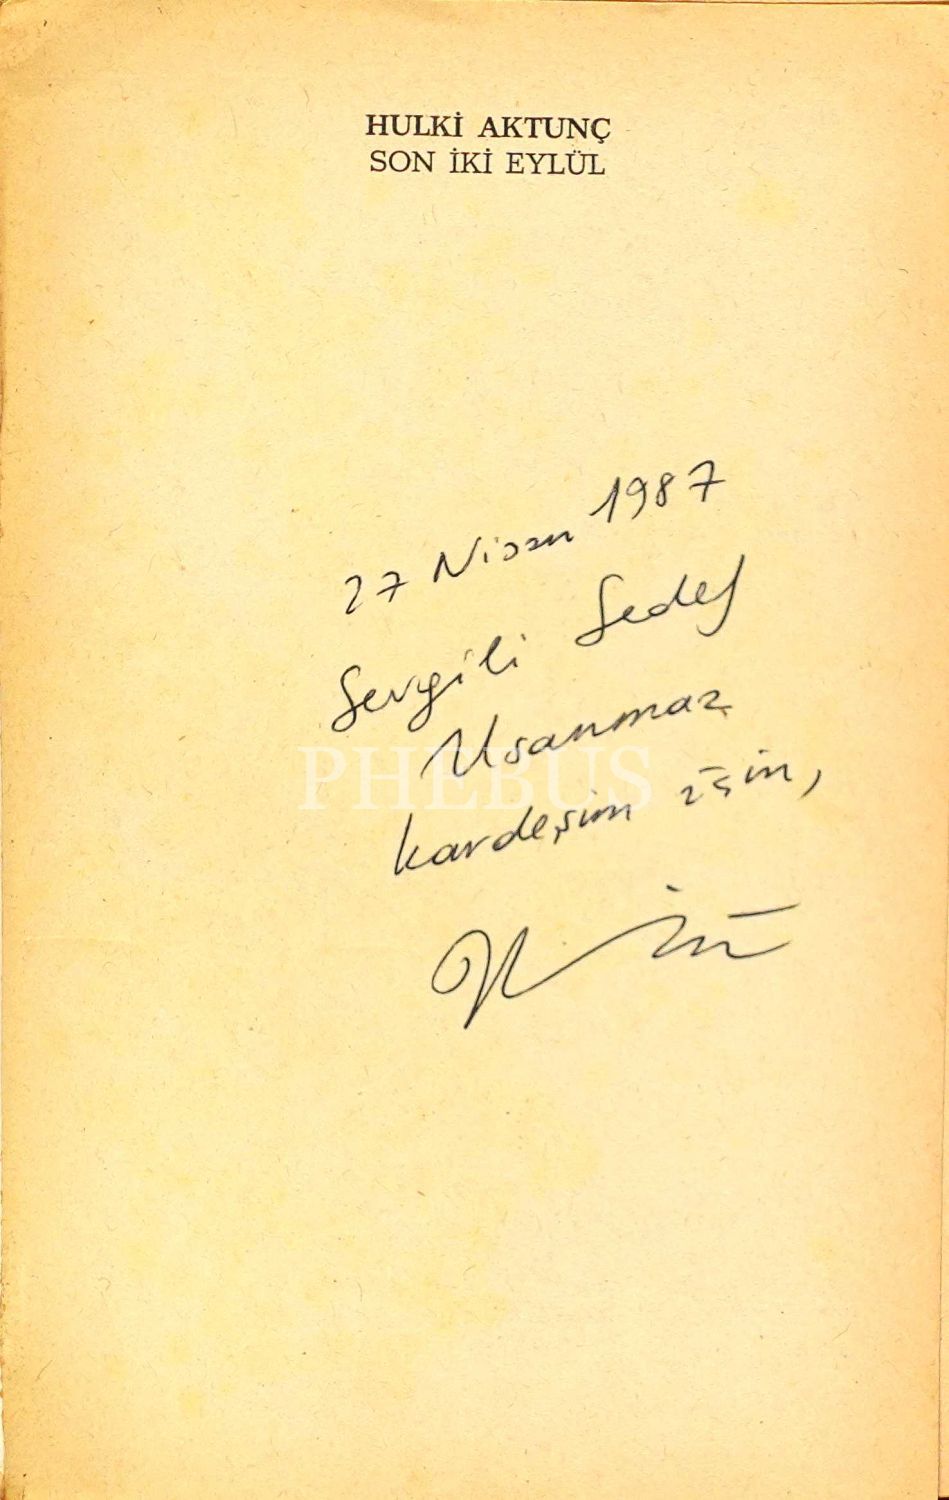 HULKİ AKTUNÇ
SON İKİ EYLÜL
27 Nisan 1987
Sevgili Sedef
Usanmaz
PHEBUS
kardeşim için,